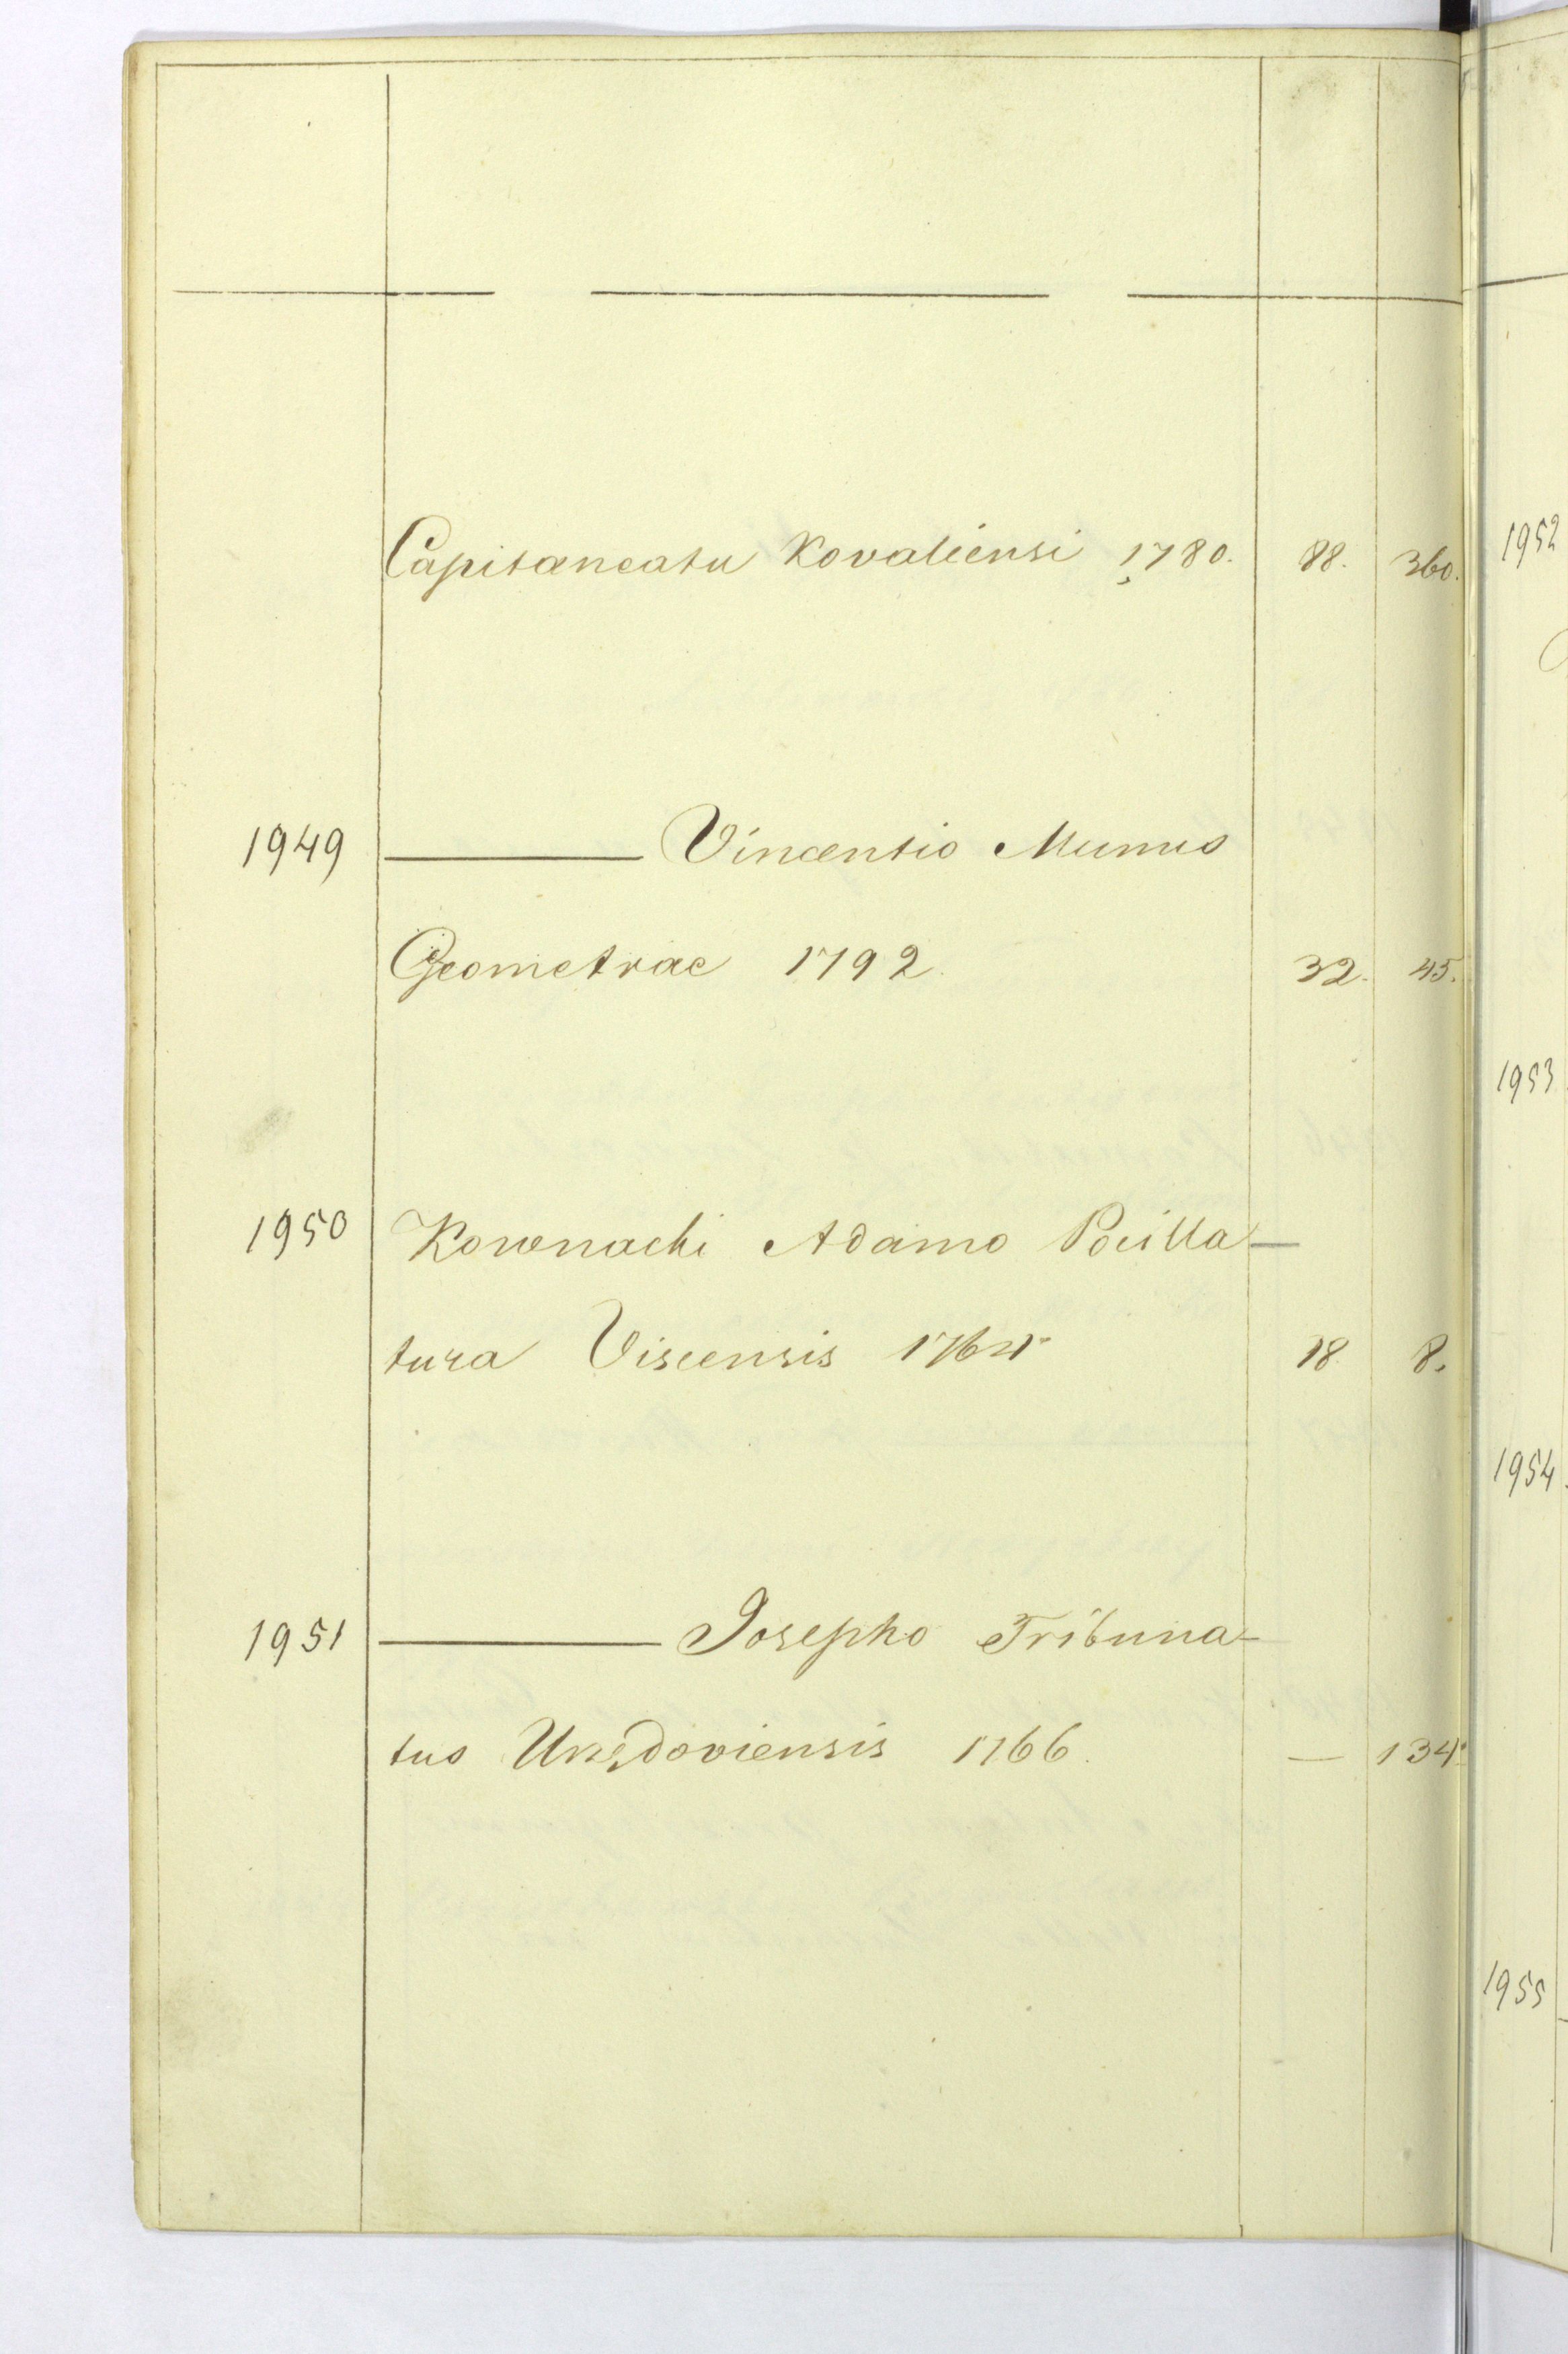 Capitaneatu Kovaliensi 1780. 88. 360.
1949 ——— Vincentio Munus
Geometrae 1792. 32. 45.
1950 Kownacki Adamo Pocilla—
tura Viscensis 1764 18 8.
1951 ——— Josepho Tribuna—
tus Urzędoviensis 1766. — 134.
1952
1953
1954.
1955